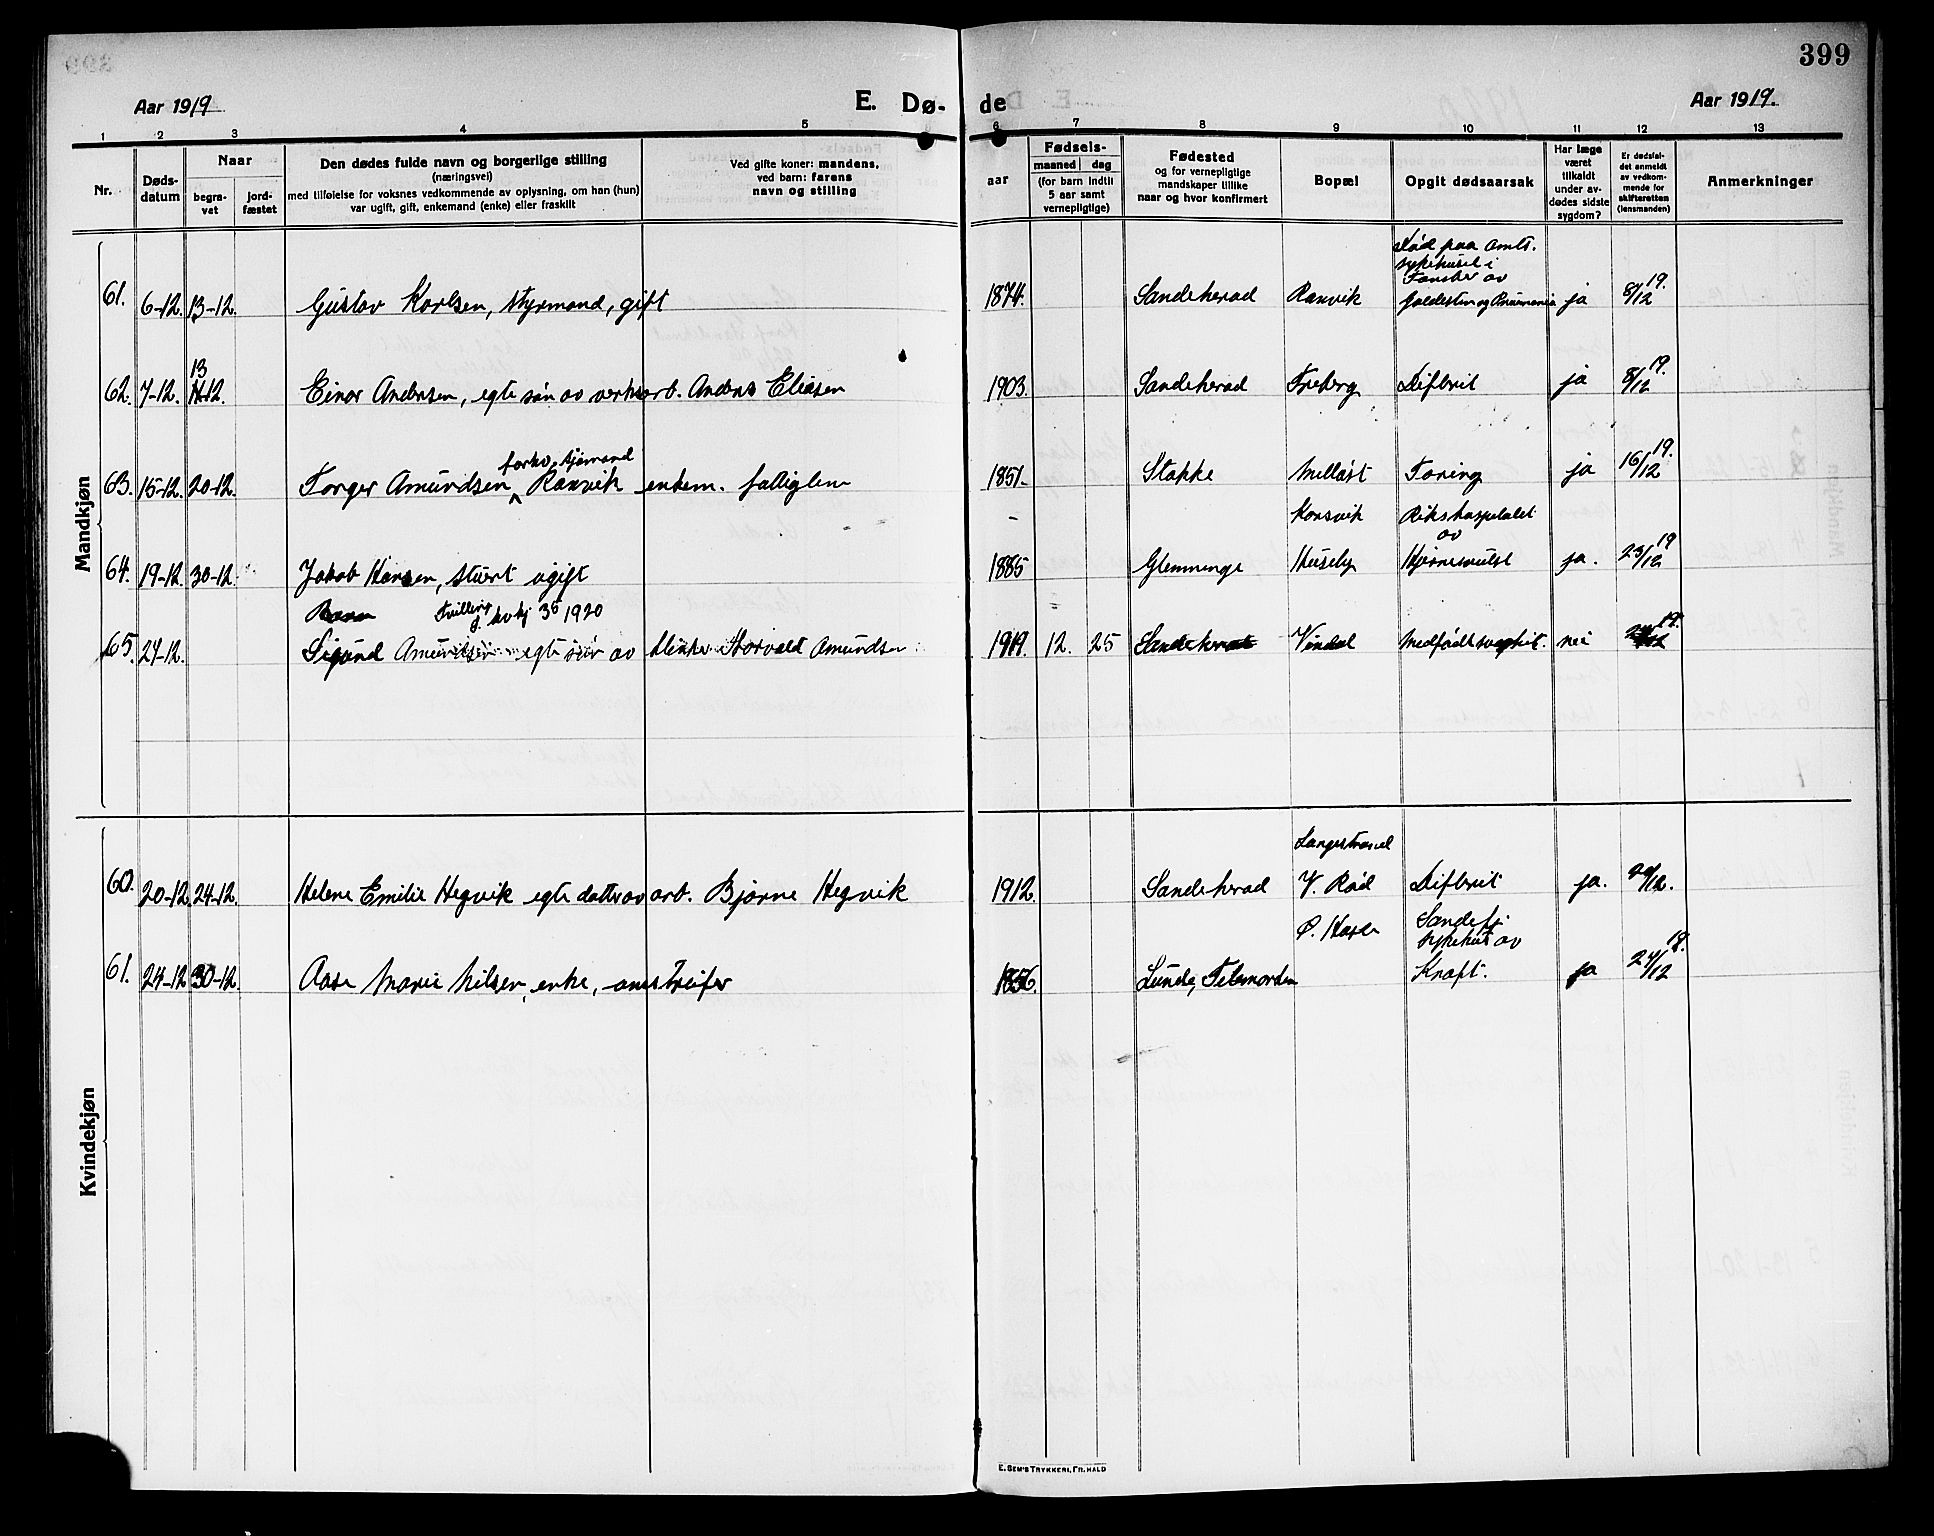 399
Aar 1919
E. Dø-
de
Aar 1919.
1 2 3 4 5 6 7 8 9 10 11 12 13
Nr.
Døds-
datum
Naar
begra-
vet
jord-
fæstet
Den dødes fulde navn og borgerlige stilling
(næringsvei)
med tilføielse for voksnes vedkommende av oplysning, om han (hun)
var ugift, gift, enkemand (enke) eller fraskilt
Ved gifte koner: mandens,
ved barn: farens
navn og stilling
aar
Fødsels-
maaned dag
(for barn indtil
5 aar samt
vernepligtige)
Fødested
og for vernepligtige
mandskaper tillike
naar og hvor konfirmert
Bopæl
Opgit dødsaarsak
Har læge
været
tilkaldt
under av-
dødes sidste
sygdom?
Er dødsfal-
det anmeldt
av vedkom-
mende for
skifteretten
(lensmanden)
Anmerkninger
Mandkjøn
død paa amts.
sykehuset i
Tønsber av
61. 6-12. 13-12. Gustav Karlsen, styrmand, gift 1874. Sandeherad Ranvik Galdesten og Pneumonia ja 8/12 19.
13
62. 7-12. 12. Einar Andersen, egte søn av verksarb. Anders Eliasen 1903. Sandeherad Freberg Difterit ja 8/12 19.
forhv. sjømand
63. 15-12. 20-12. Torger Amundsen Ranvik enkem. fattiglem 1851. Stokke Melløst Tæring ja 16/12 19.
Korsvik Rikshospitalet
av
64. 19-12. 30-12. Jakob Hansen, stuert ugift 1885 Glemminge Huseby Hjernesvulst ja. 23/12 19
Tvilling kvkj 36 1920
65. 27-12. Sigurd Amundsen egte søn av klinker Thorvald Amundsen 1919. 12. 25 Sandeherad Vindal medfødt svaghet. nei 19.
Kvindekjøn
Langestrand
60. 20-12. 24-12. Helene Emilie Hegvik egte datter av arb. Bjarne Hegvik 1912. Sandeherad V. Rød Difterit ja. /12.
Ø. Hasle Sandefj.
sykehus av
61. 24-12 30-12. Aase Marie Nilsen, enke, omstreifer 1856. Lunde, Telemarken Kræft. ja 27/12 19.
E. SEM'S TRYKKERI, FR. HALD